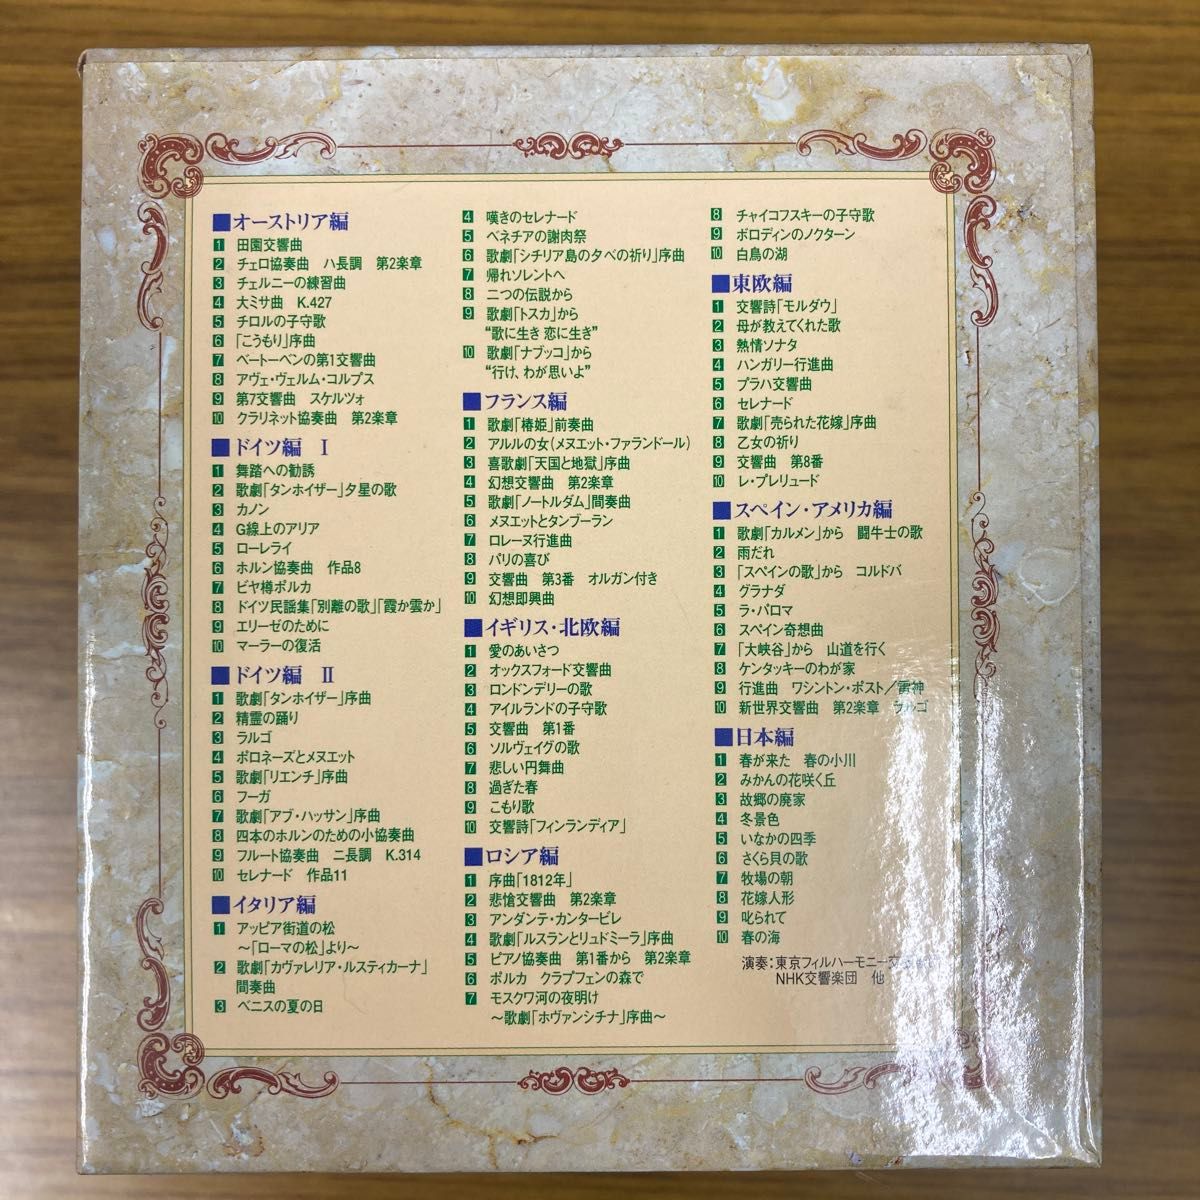 ■オーストリア編
1 田園交響曲
2 チェロ協奏曲 ハ長調 第2楽章
3 チェルニーの練習曲
4 大ミサ曲 K.427
5 チロルの子守歌
6 「こうもり」序曲
7 ベートーベンの第1交響曲
8 アヴェ・ヴェルム・コルプス
9 第7交響曲 スケルツォ
10 クラリネット協奏曲 第2楽章
■ドイツ編 Ⅰ
1 舞踏への勧誘
2 歌劇「タンホイザー」夕星の歌
3 カノン
4 G線上のアリア
5 ローレライ
6 ホルン協奏曲 作品8
7 ビヤ樽ポルカ
8 ドイツ民謡集「別離の歌」「霞か雲か」
9 エリーゼのために
10 マーラーの復活
■ドイツ編 Ⅱ
1 歌劇「タンホイザー」序曲
2 精霊の踊り
3 ラルゴ
4 ポロネーズとメヌエット
5 歌劇「リエンチ」序曲
6 フーガ
7 歌劇「アブ・ハッサン」序曲
8 四本のホルンのための小協奏曲
9 フルート協奏曲 ニ長調 K.314
10 セレナード 作品11
■イタリア編
1 アッピア街道の松
～「ローマの松」より～
2 歌劇「カヴァレリア・ルスティカーナ」
間奏曲
3 ベニスの夏の日
4 嘆きのセレナード
5 ベネチアの謝肉祭
6 歌劇「シチリア島の夕べの祈り」序曲
7 帰れソレントへ
8 二つの伝説から
9 歌劇「トスカ」から
“歌に生き 恋に生き”
10 歌劇「ナブッコ」から
“行け、わが思いよ”
■フランス編
1 歌劇「椿姫」前奏曲
2 アルルの女(メヌエット・ファランドール)
3 喜歌劇「天国と地獄」序曲
4 幻想交響曲 第2楽章
5 歌劇「ノートルダム」間奏曲
6 メヌエットとタンブーラン
7 ロレーヌ行進曲
8 パリの喜び
9 交響曲 第3番 オルガン付き
10 幻想即興曲
■イギリス・北欧編
1 愛のあいさつ
2 オックスフォード交響曲
3 ロンドンデリーの歌
4 アイルランドの子守歌
5 交響曲 第1番
6 ソルヴェイグの歌
7 悲しい円舞曲
8 過ぎた春
9 こもり歌
10 交響詩「フィンランディア」
■ロシア編
1 序曲「1812年」
2 悲愴交響曲 第2楽章
3 アンダンテ・カンタービレ
4 歌劇「ルスランとリュドミーラ」序曲
5 ピアノ協奏曲 第1番から 第2楽章
6 ポルカ クラプフェンの森で
7 モスクワ河の夜明け
～歌劇「ホヴァンシチナ」序曲～
8 チャイコフスキーの子守歌
9 ボロディンのノクターン
10 白鳥の湖
■東欧編
1 交響詩「モルダウ」
2 母が教えてくれた歌
3 熱情ソナタ
4 ハンガリー行進曲
5 プラハ交響曲
6 セレナード
7 歌劇「売られた花嫁」序曲
8 乙女の祈り
9 交響曲 第8番
10 レ・プレリュード
■スペイン・アメリカ編
1 歌劇「カルメン」から 闘牛士の歌
2 雨だれ
3 「スペインの歌」から コルドバ
4 グラナダ
5 ラ・パロマ
6 スペイン奇想曲
7 「大峡谷」から 山道を行く
8 ケンタッキーのわが家
9 行進曲 ワシントン・ポスト／雷神
10 新世界交響曲 第2楽章 ラルゴ
■日本編
1 春が来た 春の小川
2 みかんの花咲く丘
3 故郷の廃家
4 冬景色
5 いなかの四季
6 さくら貝の歌
7 牧場の朝
8 花嫁人形
9 叱られて
10 春の海
演奏:東京フィルハーモニー交
NHK交響楽団 他